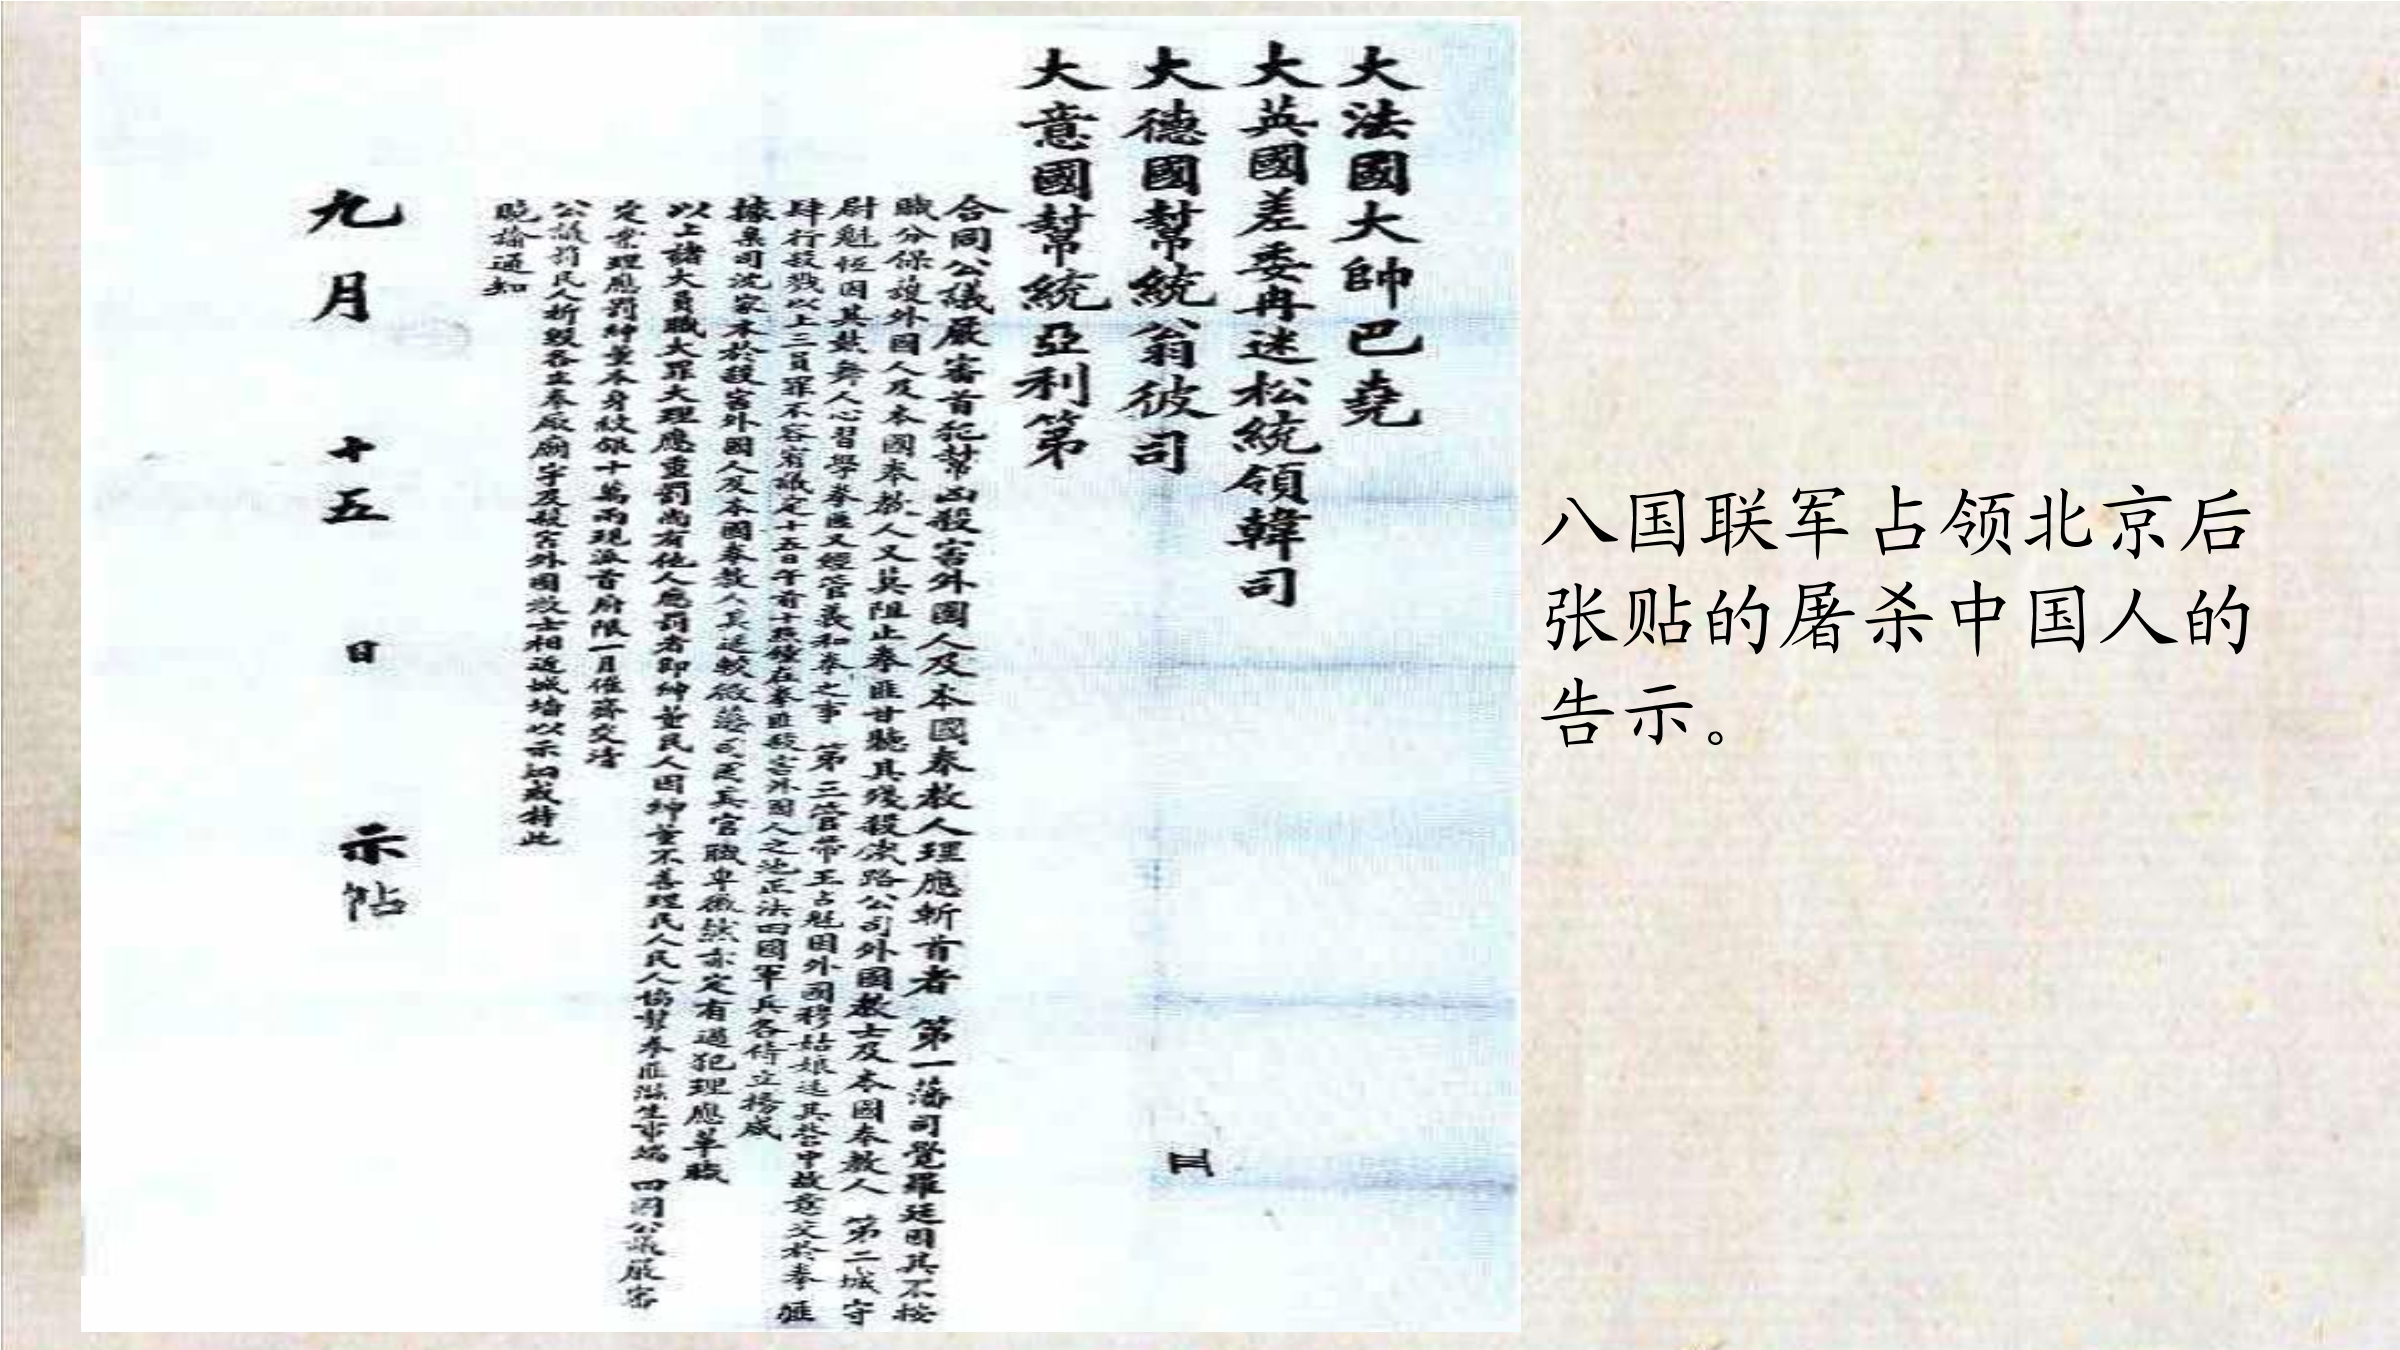 大法國大帥巴堯
大英國差委冉迷松統領韓司
大德國幫統翁彼司
大意國幫統亞利第
合同公議嚴審首犯幫凶殺害外國人及本國奉教人理應斬首者 第一藩司覺羅廷因其不按
職分保護外國人及本國奉教人又其阻止拳匪甘聽其殘殺鐵路公司外國教士及本國奉教人 第二城守
尉魁恆因其熬弊人心習學拳匪又經管義和拳之事 第三管帶王占魁因外國穆姑娘送其營中故意交於拳匪
肆行殺戮以上三員罪不容宥議定十五日午前十點鐘在拳匪殺害外國人之地正法四國軍兵各侍立揚威
據臬司沈家本於殺害外國人及本國奉教人其過較微藩司之其官職卑微然亦定有過犯理應革職
以上諸大員職大罪大理應重罰尚有他人應罰者即紳董民人因紳董不善理民人民人協幫拳匪滋生事端 四國公議嚴審
定案理應罰紳董本身紋銀十萬兩現派首府限一月催齊交清
公議罰民人拆毀各立拳廠廟宇及殺害外國教士相近城墻以示炯戒特此
曉諭通知
九月十五日 示帖
八国联军占领北京后
张贴的屠杀中国人的
告示。